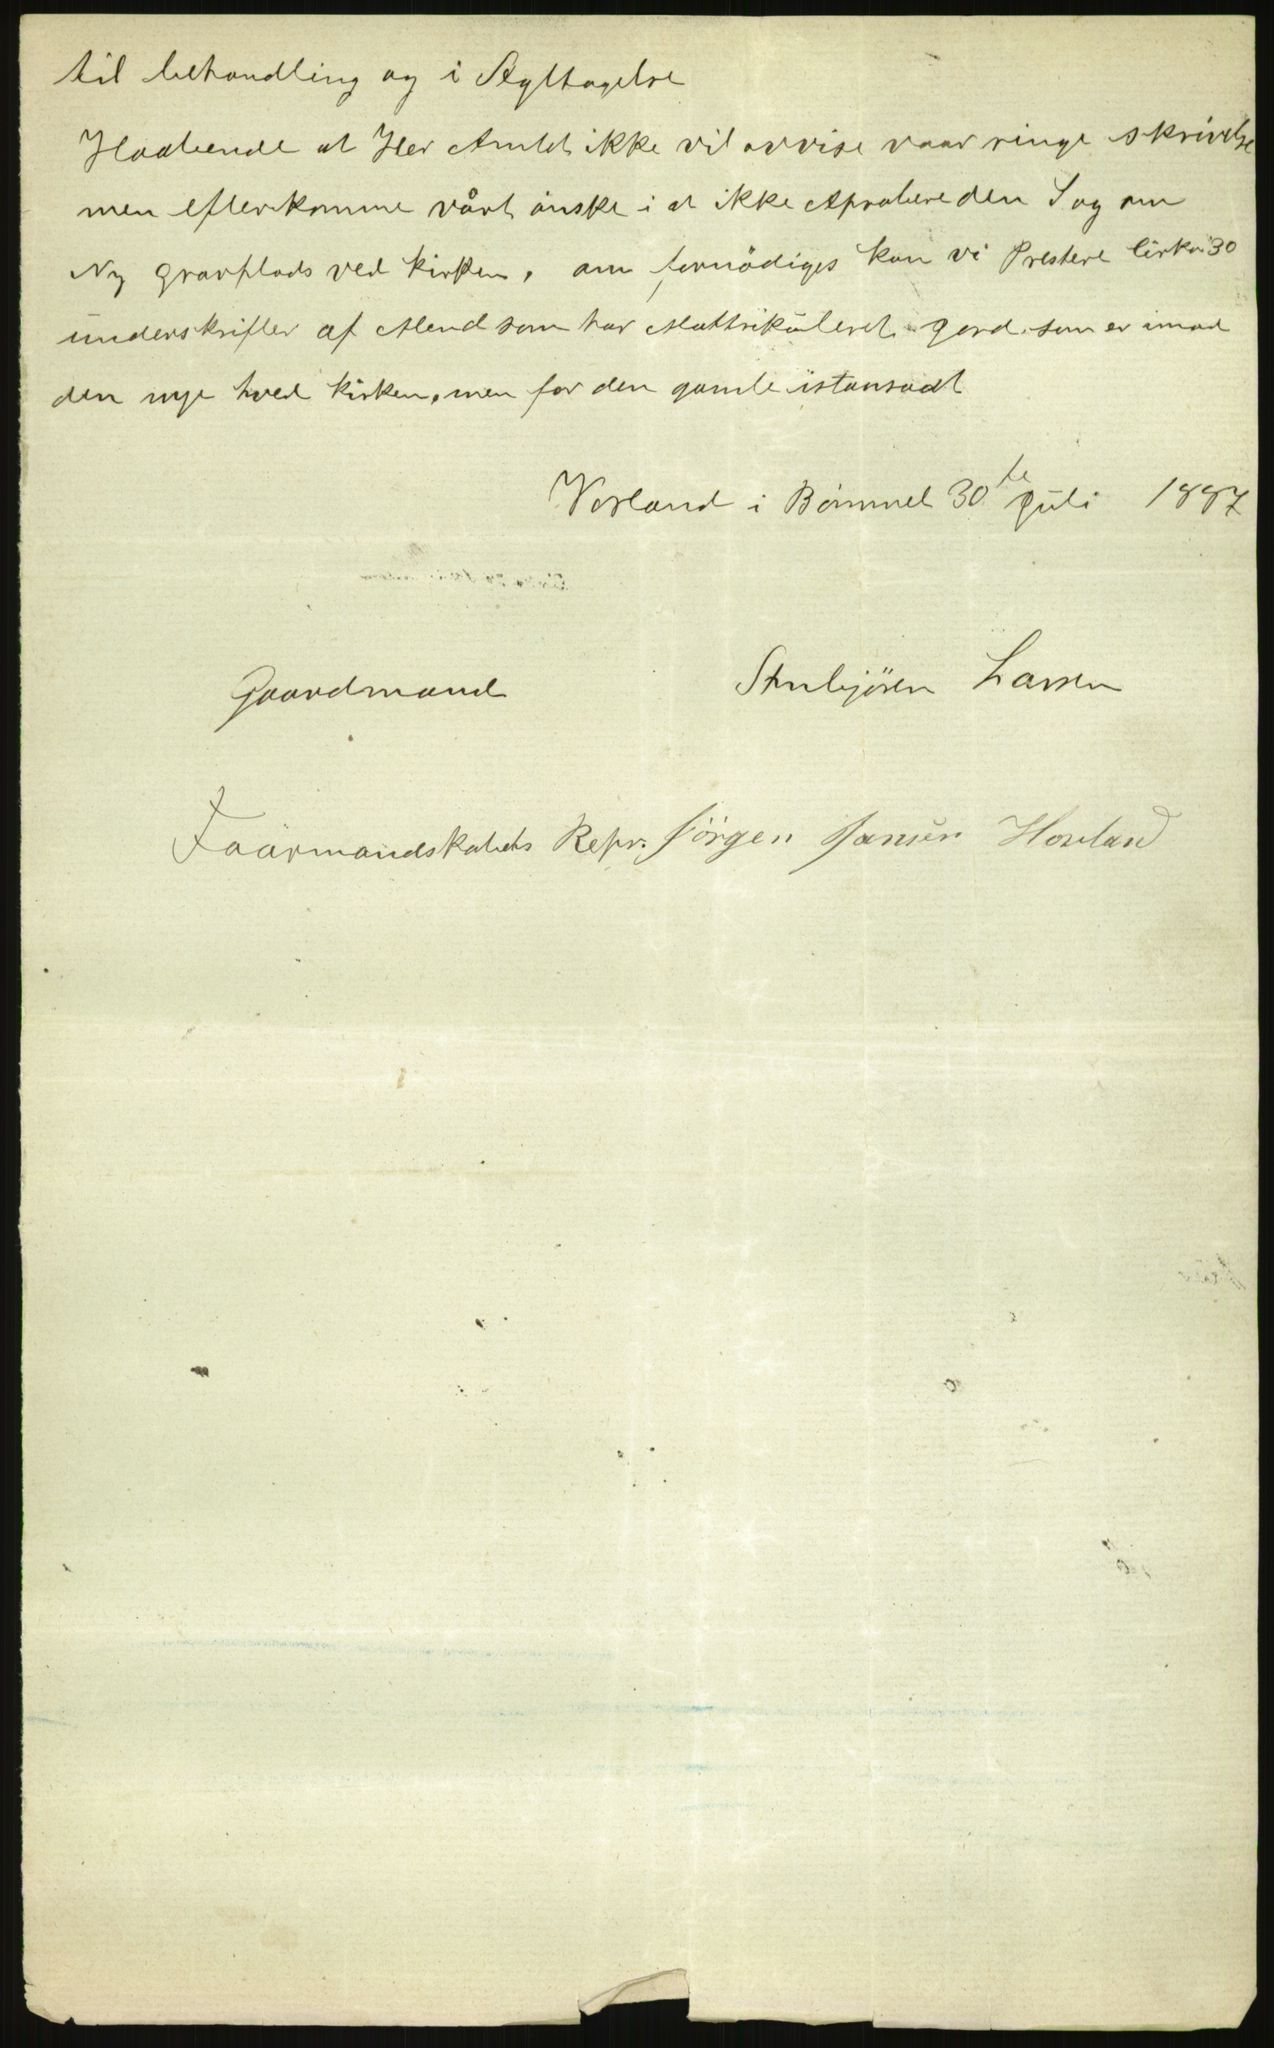 til behandling og i Agttagelse
Haabende at Her Amtet ikke vil avvise vaar ringe skrivelse
men efterkomme vårt ønske i at ikke Aprobere den Sag om
Ny gravplads ved kirken, om fornödiges kan vi Prestere Cirka 30
underskrifter af Mend som har Mattrikuleret gard som er imod
den nye hved kirken, men for den gamle
Vorland i Bömmel 30te Juli 1887
Gaardmand Stenbjören Larsen
Foormandskabets Repr. Jörgen Jansen Hovland